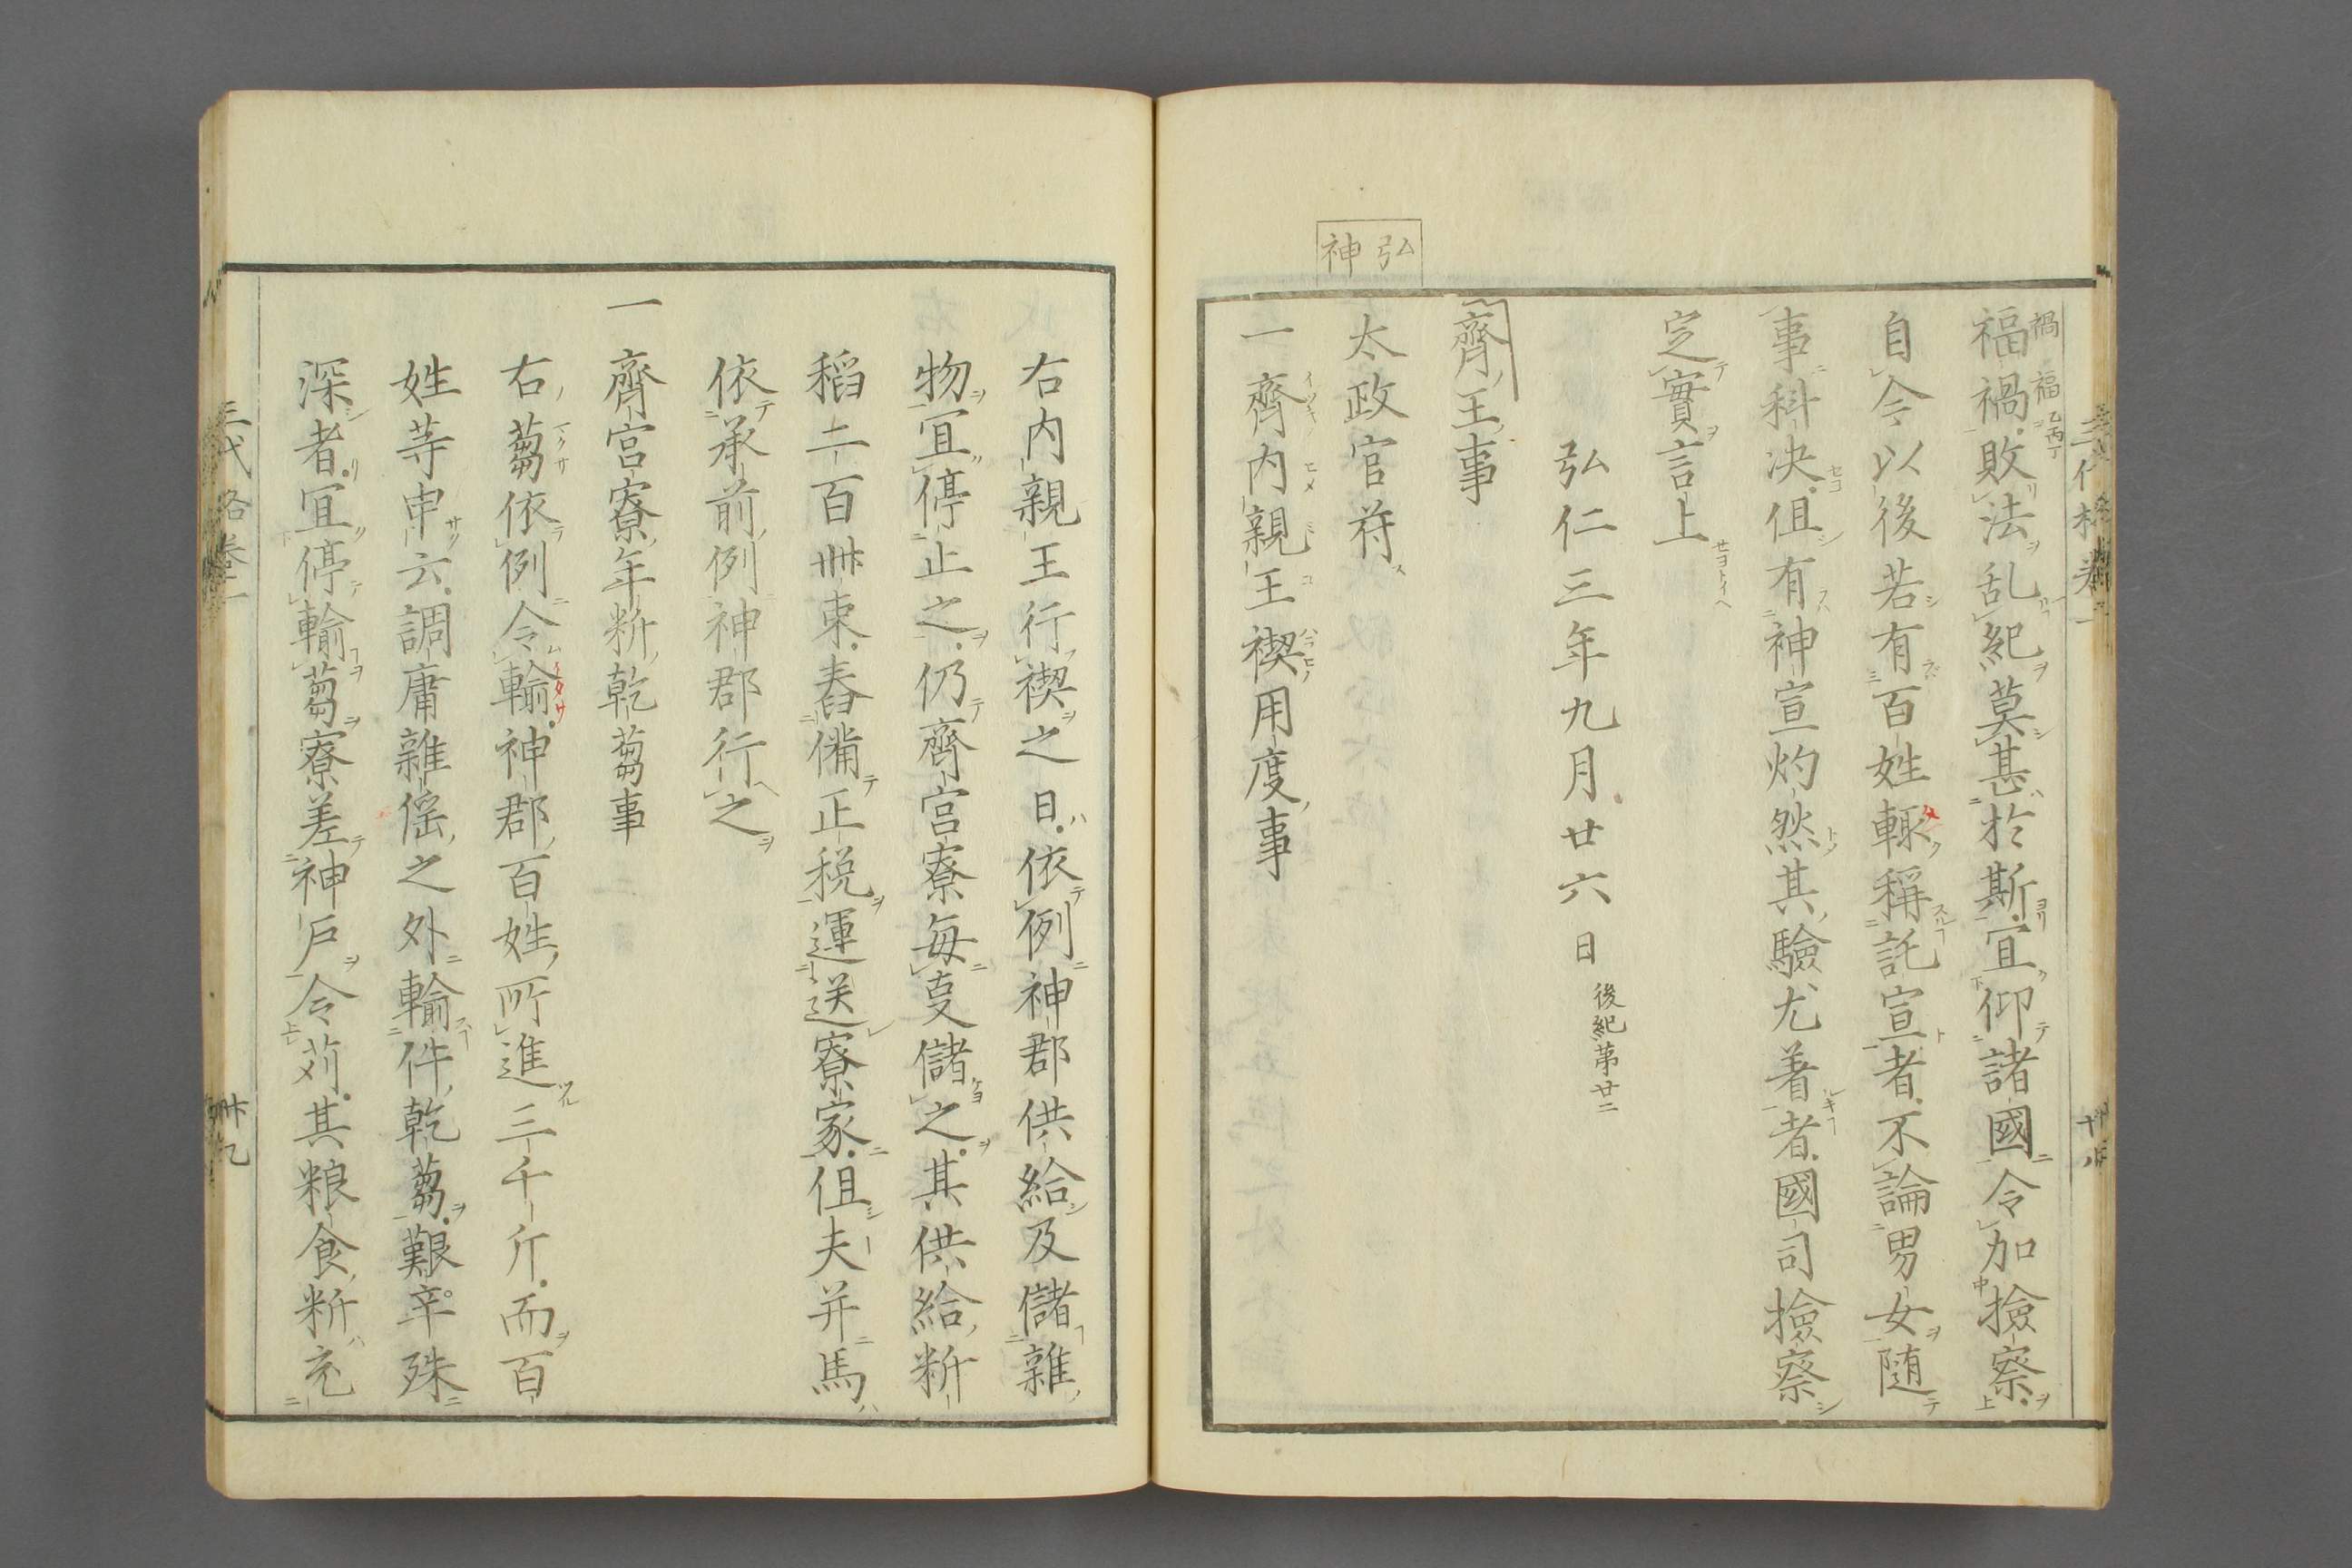 弘神
福禍敗法乱紀莫甚於斯宜仰諸國令加撿察
自今以後若有百姓輙稱託宣者不論男女随
事科决但有神宣灼然其驗尤著者國司撿察
定實言上
弘仁三年九月廿六日 後紀第廿二
齊王事
太政官符
一齊内親王禊用度事
右内親王行禊之日依例神郡供給及儲雜
物宜停止之仍齊宮寮毎支儲之其供給新
稻二百卌束舂備正税運送寮家但夫并馬
依承前例神郡行之
一齊宮寮年新乾蒭事
右蒭依例令輸神郡百姓所進三千斤而百
姓等申云調庸雜徭之外輸件乾蒭艱辛殊
深者宜停輸蒭寮差神戸令苅其粮食新充
三代格卷一